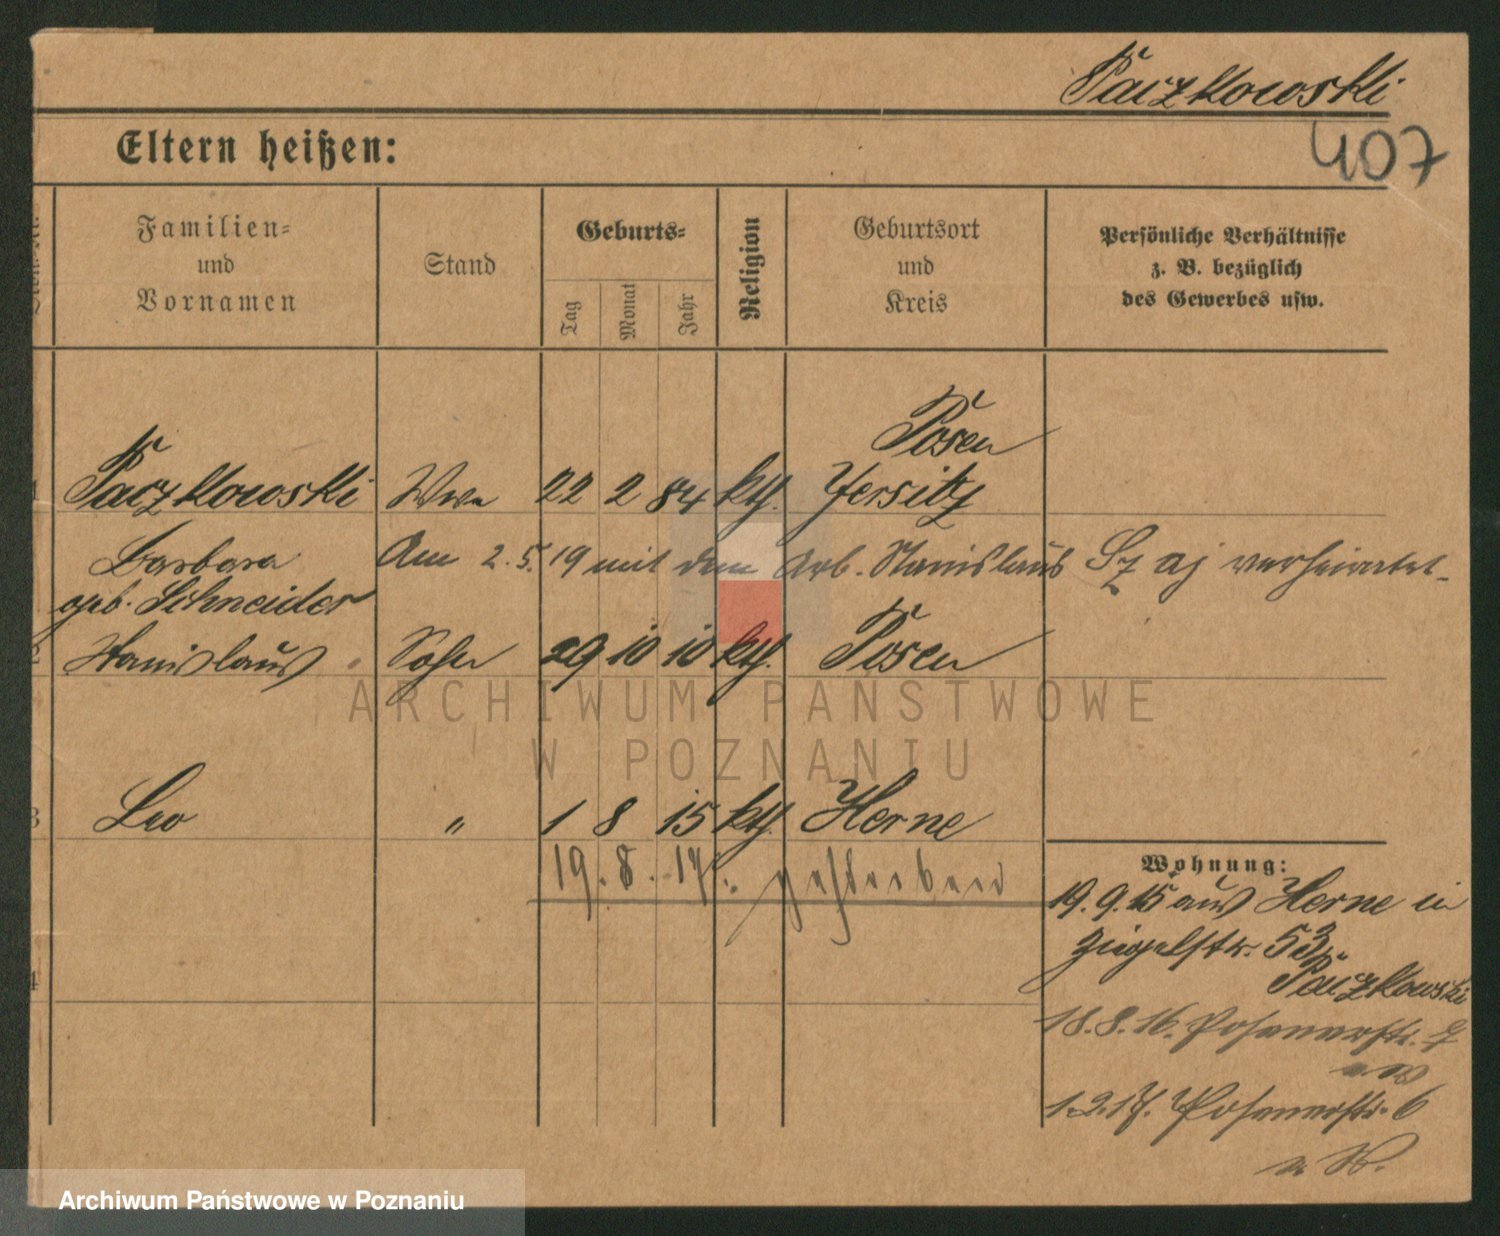 Paczkowski
407
Eltern heißen:
Familien- und Vornamen
Stand
Geburts-
Tag
Monat
Jahr
Religion
Geburtsort und Kreis
Persönliche Verhältnisse
z. B. bezüglich
des Gewerbes usw.
Posen
Paczkowski Wwe 22 2 84 kth. Jersitz
Barbara Am 2. 5. 19 mit dem Arb. Stanislaus Szaj verheiratet.
geb. Schneider
Stanislaus Sohn 29 10 10 kth. Posen
ARCHIWUM PAŃSTWOWE
W POZNANIU
3 Leo " 1 8 15 kth. Herne
19. 8. 17. gestorben
Wohnung:
19. 9. 15 aus Herne in
Ziegelstr. 53
Paczkowski
4
18. 8. 16. Posenerstr.
1. 2. 17. Posenerstr. 6
Archiwum Państwowe w Poznaniu